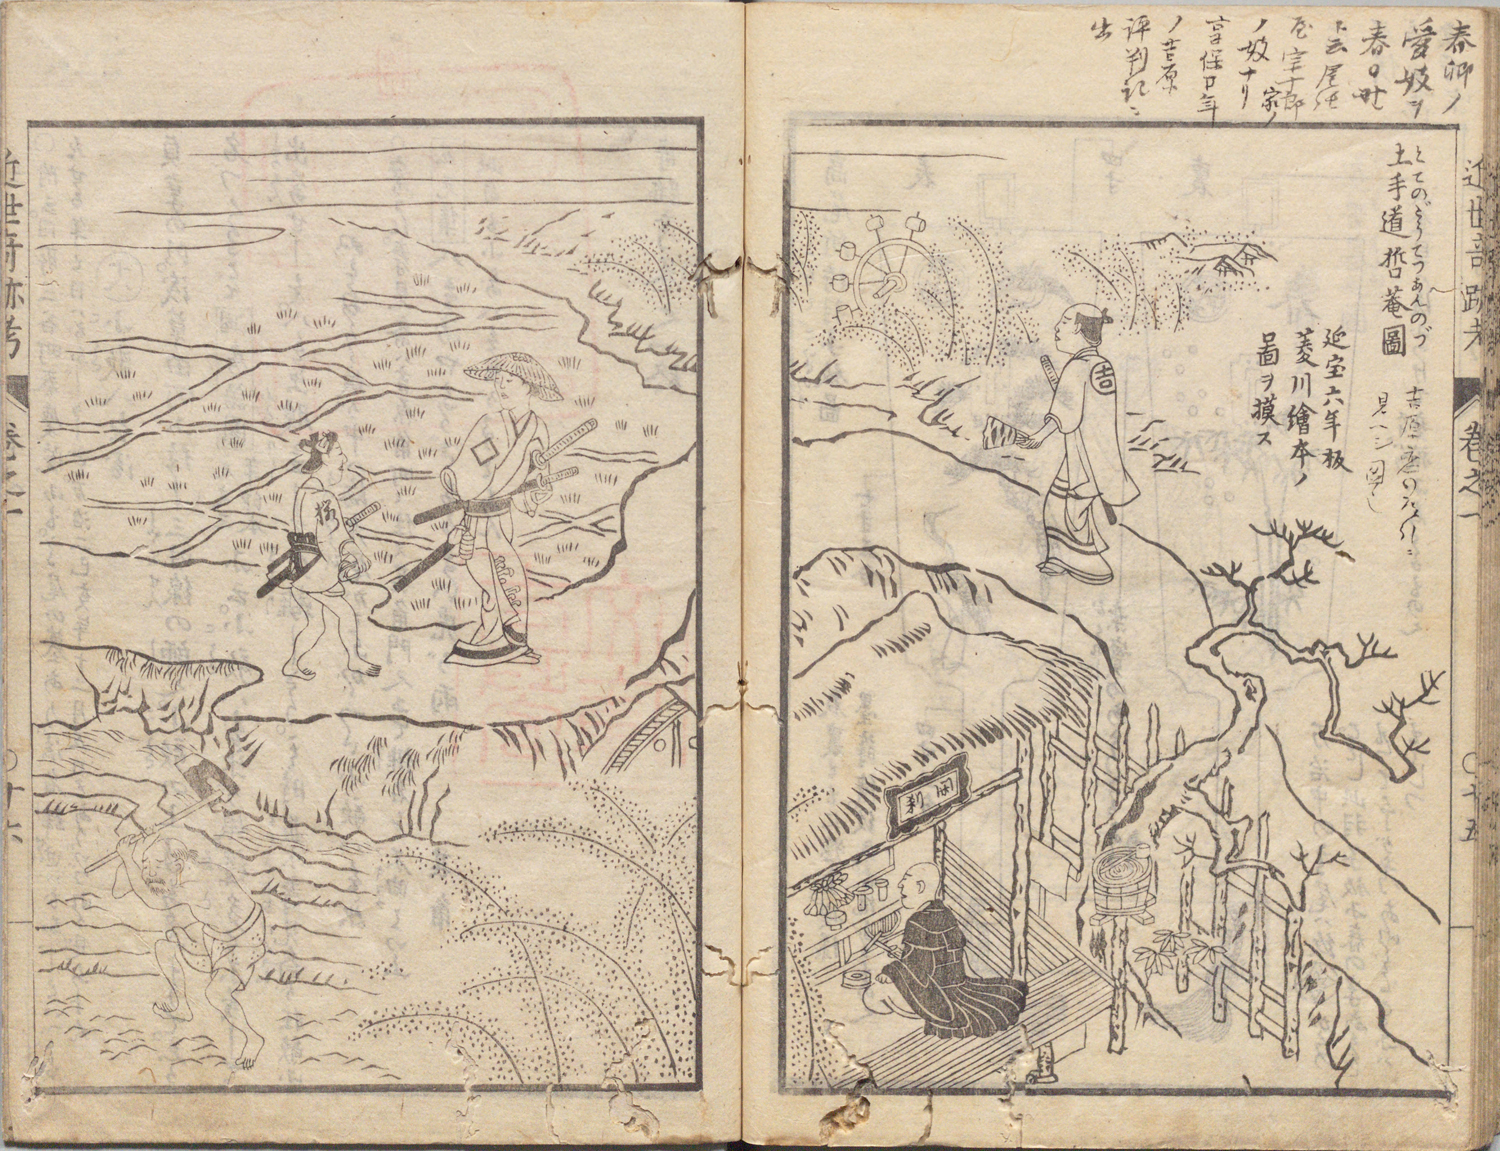 春卿ノ
愛妓ヲ
春日野
ト云尾張
屋宗十郎
家ノ
ノ妓ナリ
享保四年
ノ吉原
評判記ニ
出
とてのどうてつあんのづ
土手道哲菴圖
延宝六年板
菱川繪本ノ
圖ヲ摸ス
吉原
見ヘシ図也
近世奇跡考
巻之一
〇十五
吉
近世奇跡考
巻之一
〇十六